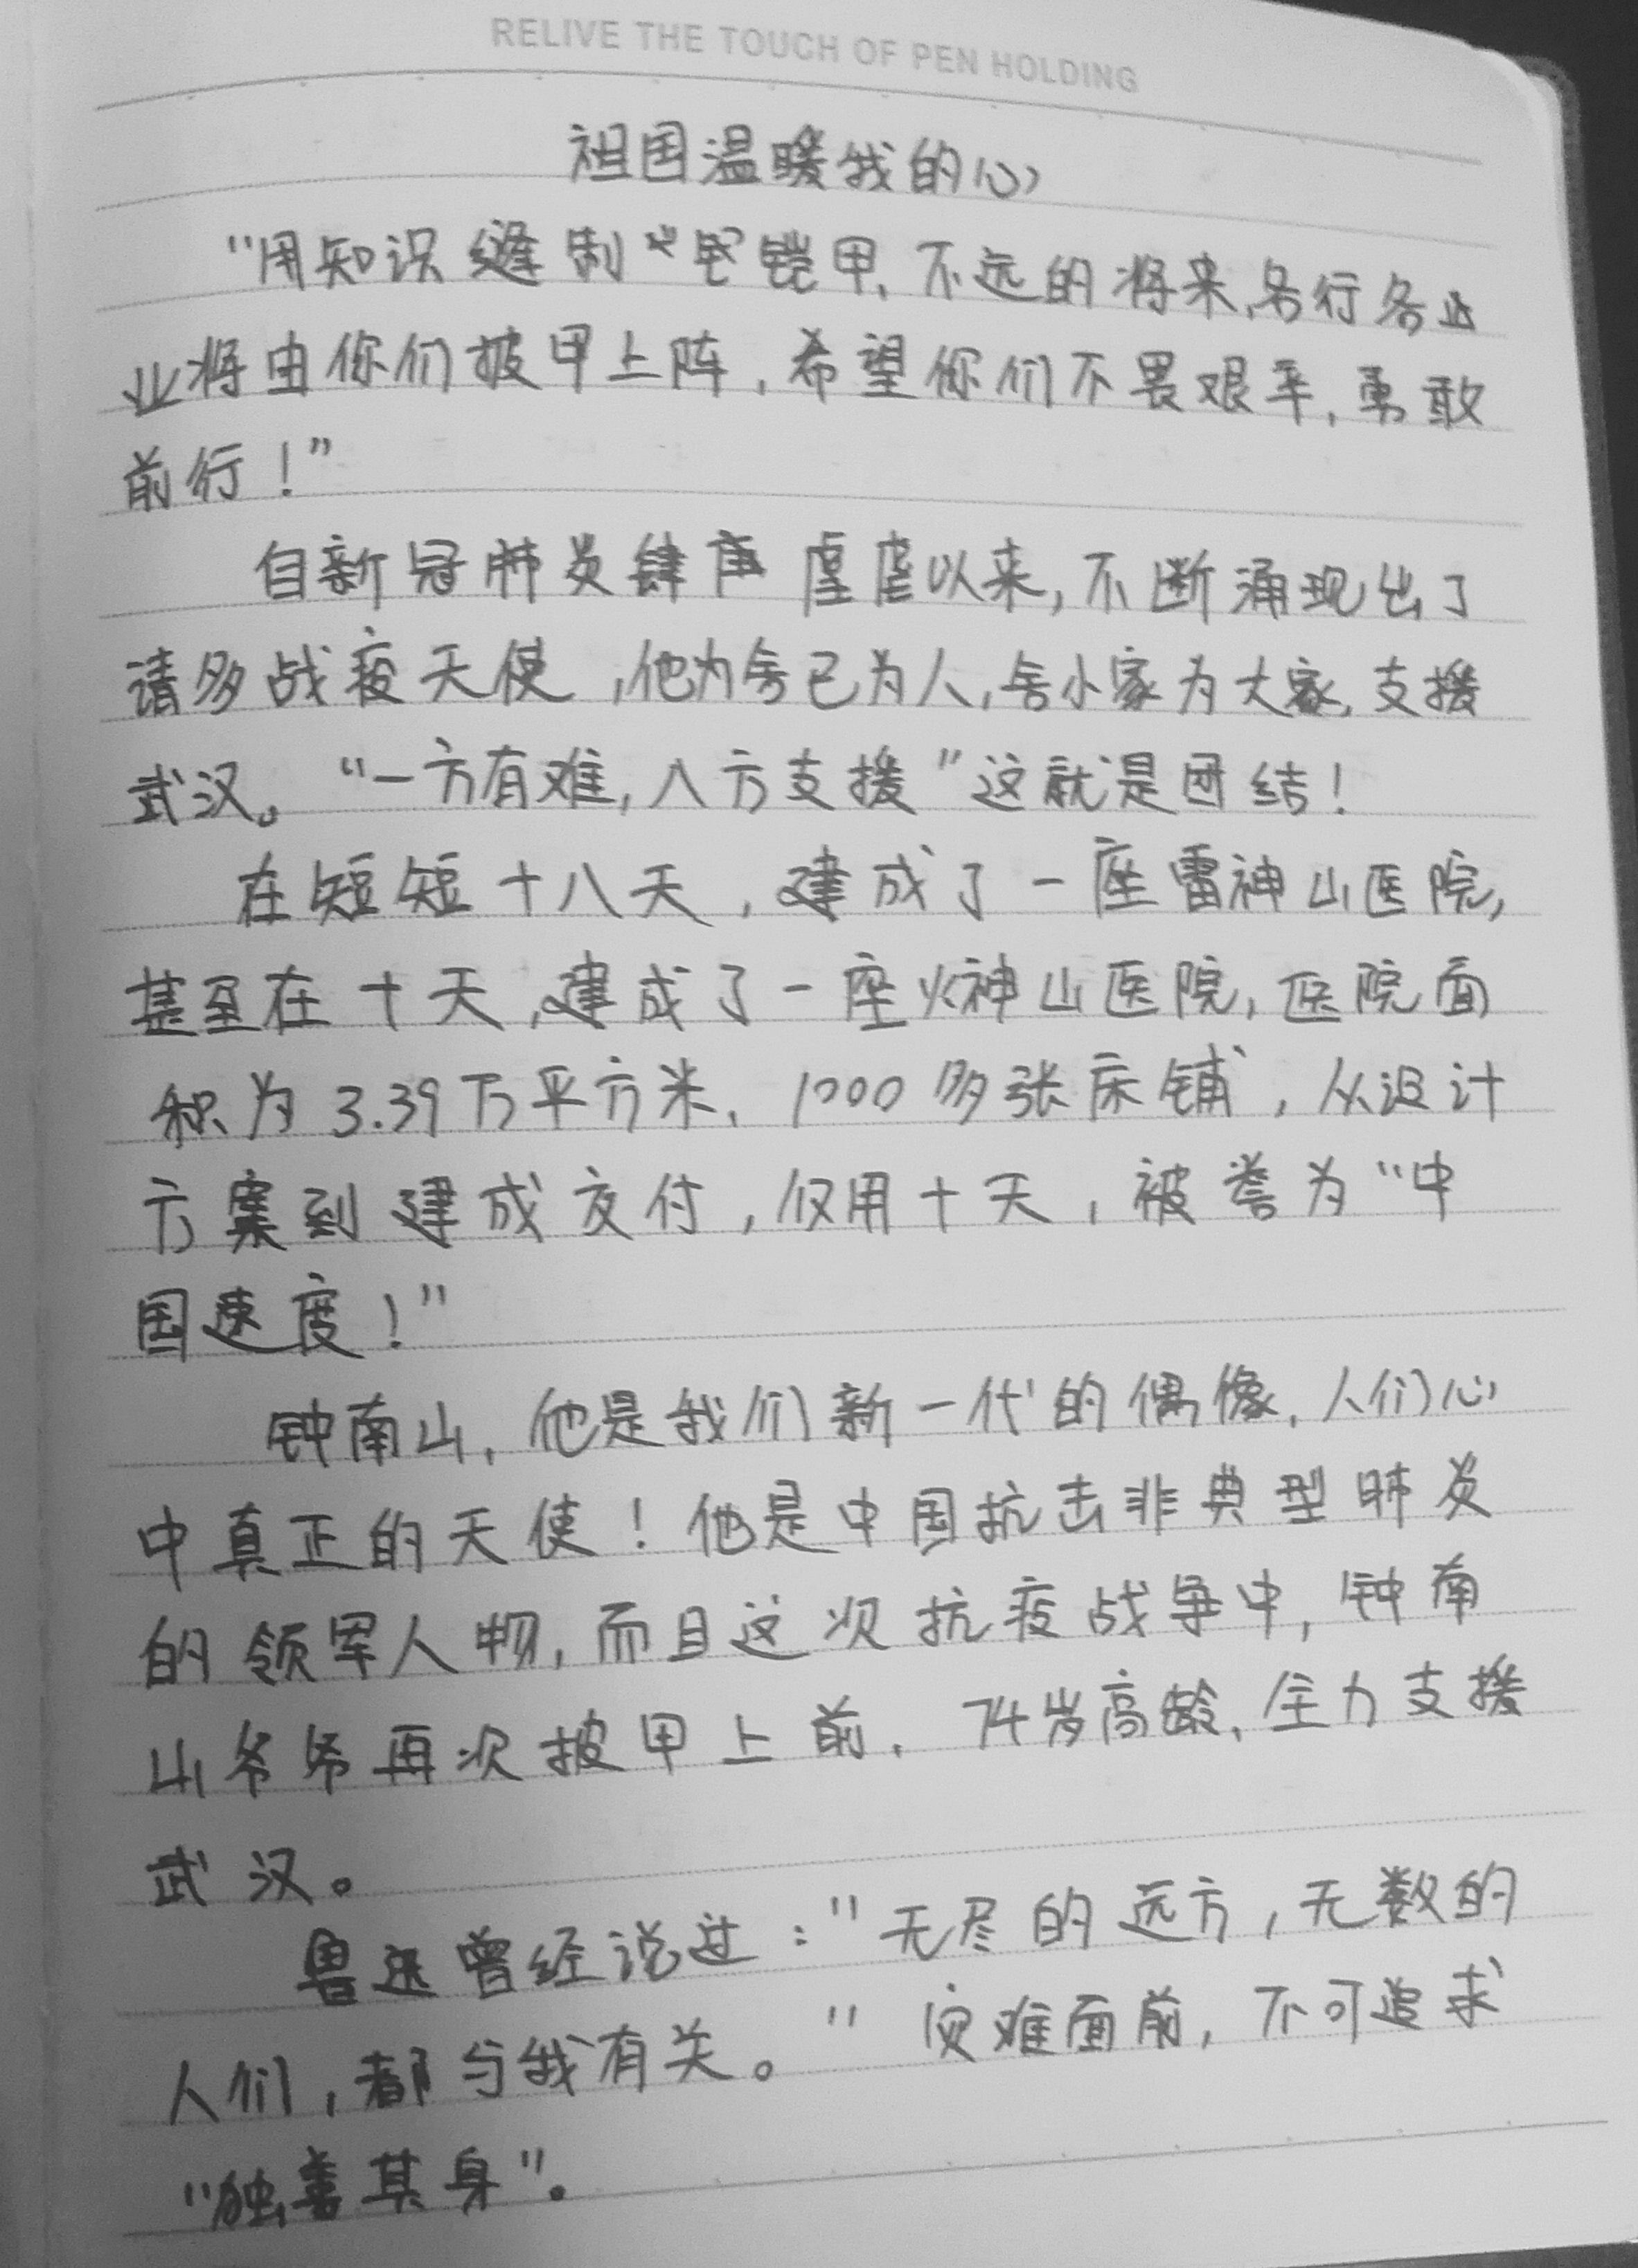 RELIVE THE TOUCH OF PEN HOLDING
祖国温暖我的心
“用知识缝制铠甲,不远的将来,各行各业
业将由你们披甲上阵,希望你们不畏艰辛,勇敢
前行!”
自新冠肺炎肆虐虐以来,不断涌现出了
请多战疫天使,他为舍己为人,舍小家为大家,支援
武汉。“一方有难,八方支援”这就是团结!
在短短十八天,建成了一座雷神山医院,
甚至在十天,建成了一座火神山医院,医院面
积为3.39万平方米,1000多张床铺,从设计
方案到建成交付,仅用十天,被誉为“中
国速度!”
钟南山,他是我们新一代的偶像,人们心
中真正的天使!他是中国抗击非典型肺炎
的领军人物,而且这次抗疫战争中,钟南
山爷爷再次披甲上前,74岁高龄,全力支援
武汉。
鲁迅曾经说过:“无尽的远方,无数的
人们,都与我有关。”灾难面前,不可追求
“独善其身”。